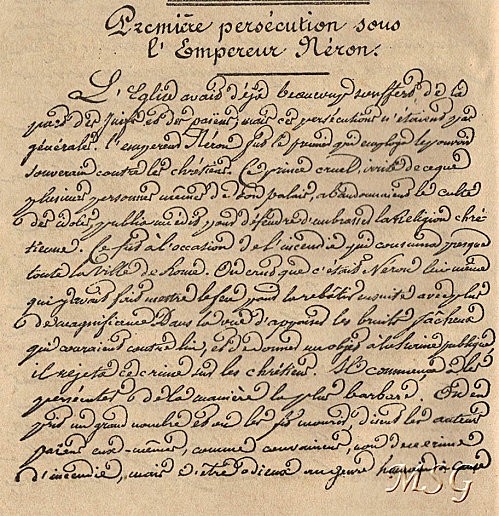 Première persécution sous
l'Empereur Néron.
L'Eglise avait déjà beaucoup souffert de la
part des Juifs et des païens, mais ces persécutions n'étaient pas
générales. l'empereur Néron fut le premier qui employa le pouvoir
souverain contre les chrétiens. Ce prince cruel, irrité de ce que
plusieurs personnes mêmes de son palais, abandonnaient le culte
des idoles, publia un édit pour défendre d'embrasser la Religion chré
tienne. Ce fut a l'occasion de l'incendie qui consuma presque
toute la Ville de Rome. On crut que c'était Néron lui même
qui y avait fait mettre le feu pour la rebâtir ensuite avec plus
de magnificence Dans la vue d'appaiser les bruits fâcheux
qui couraient contre lui, et de donner un objet à la haine publique
il rejeta ce crime sur les chrétiens. Il commença à les
persécuter de la manière la plus barbare. On en
prit un grand nombre et on les fit mourir, disent les auteurs
païens eux-mêmes, comme convaincus, non du crime
d'incendie, mais d'être odieux au genre humain à cause
MSG